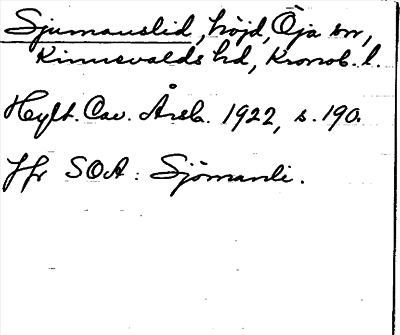 Sjumanslid, höjd, Öja sn,
Kinnevalds hd, Kronob. l.
Hylt. Cav. Årsb. 1922, s. 190.
Jfr SOA: Sjömanli.